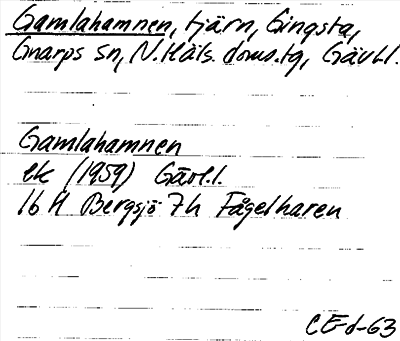 Gamlahamnen, tjärn, Gingsta,
Gnarps sn, N. Häls. doms.tg, Gävl.l.
Gamlahamnen
ek (1959) Gävl.l.
16 H Bergsjö 7h Fågelharen
CE-d-63